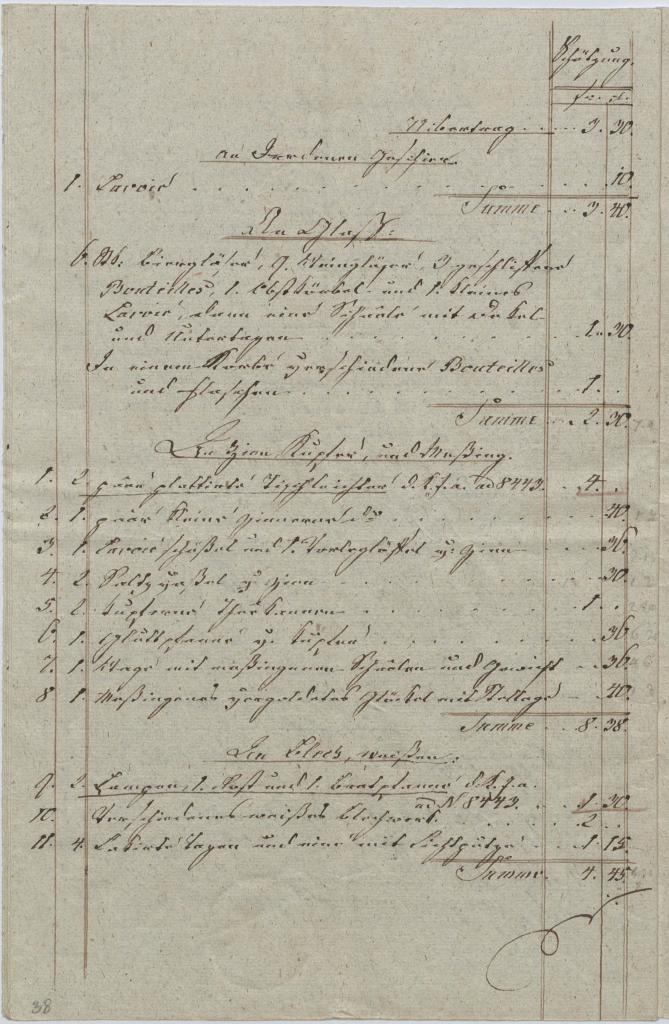 Schätzung.
fr. x.
Uibertrag . . . 3. 30.
An Irrdenen Geschier.
1. Lavoir . . . . . . . . . . 10.
Summe . . 3. 40.
An Glaß:
6. St: Biergläser, 9. Weingläser, 3 geschliffene
Bouteilles, 1. Obstkörbel und 1. kleines
Lavoir, dann eine Schaale mit Dekel
und Untertazen . . . . . . . 1. 30.
In einem Korbe verschiedene Bouteilles
und Flaschen . . . . . . . 1. .
Summe . . 2. 30.
An Zinn Kupfer, und Meßing.
1. 2. paar plattirte Tischleichter d. K. f. a. ad 8443. . 4. .
2. 1. paar kleine Zinnerne dto . . . . . 40.
3. 1. Lavoir schüßel und 1. Vorleglöffel v. Zinn . . 36.
4. 2. Salzvaßel v. Zinn . . . . . . 30.
5. 2. kupferne Thee Kannen . . . . . 1. .
6. 1. Gluttpfanne v. Kupfer . . . . . 36.
7. 1. Wage mit meßingenen Schaalen und Gewicht . 36.
8 1. Meßingenes vergoldetes Glöckel mit Stellage . 40.
Summe . . 8. 38.
An Blech, weißen:
9. 2. Lampen, 1. Rost und 1. Bratpfanne d. K. f. a.
ad N 8443. . . 1. 30.
10. Verschiedenes weißes Blechwerk. . . . 2. .
11. 4. Lakirte Tazen und eine mit Lichtputze . . 1. 15.
Summe . . 4. 45.
38